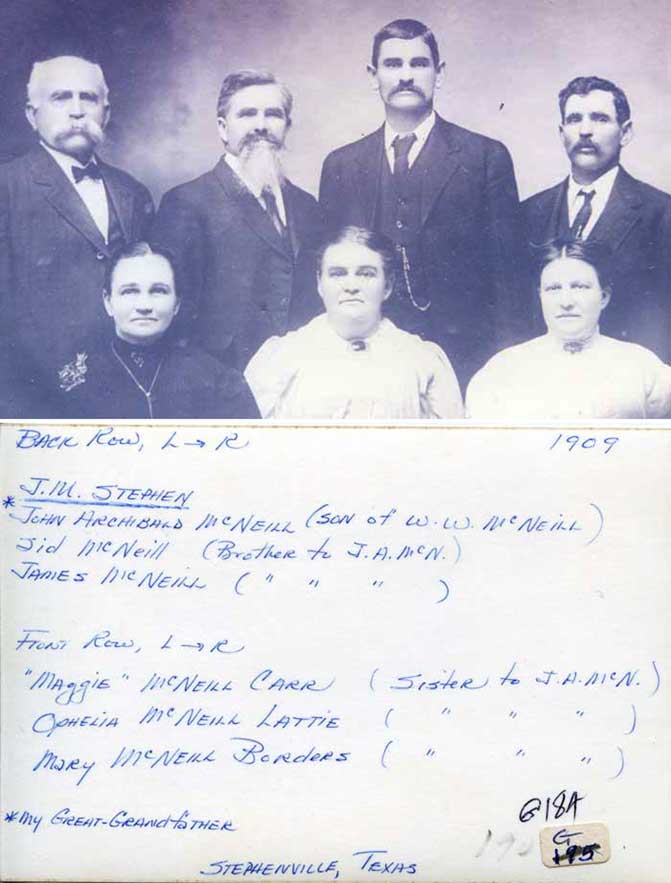 BACK ROW, L → R 1909
J.M. STEPHEN
* JOHN ARCHIBALD McNEILL (SON of W.W. McNEILL)
Sid McNeill (Brother to J.A.McN.)
JAMES McNEILL ( " " " )
FRONT ROW, L → R
"MAggiE" McNEILL CARR ( Sister to J.A.McN.)
OPHELIA McNEILL LATTIE ( " " " )
MARY McNEILL BORDERS ( " " " )
*My GREAT-GRANDFATHER
G18A
G
195
STEPHENVILLE, TEXAS